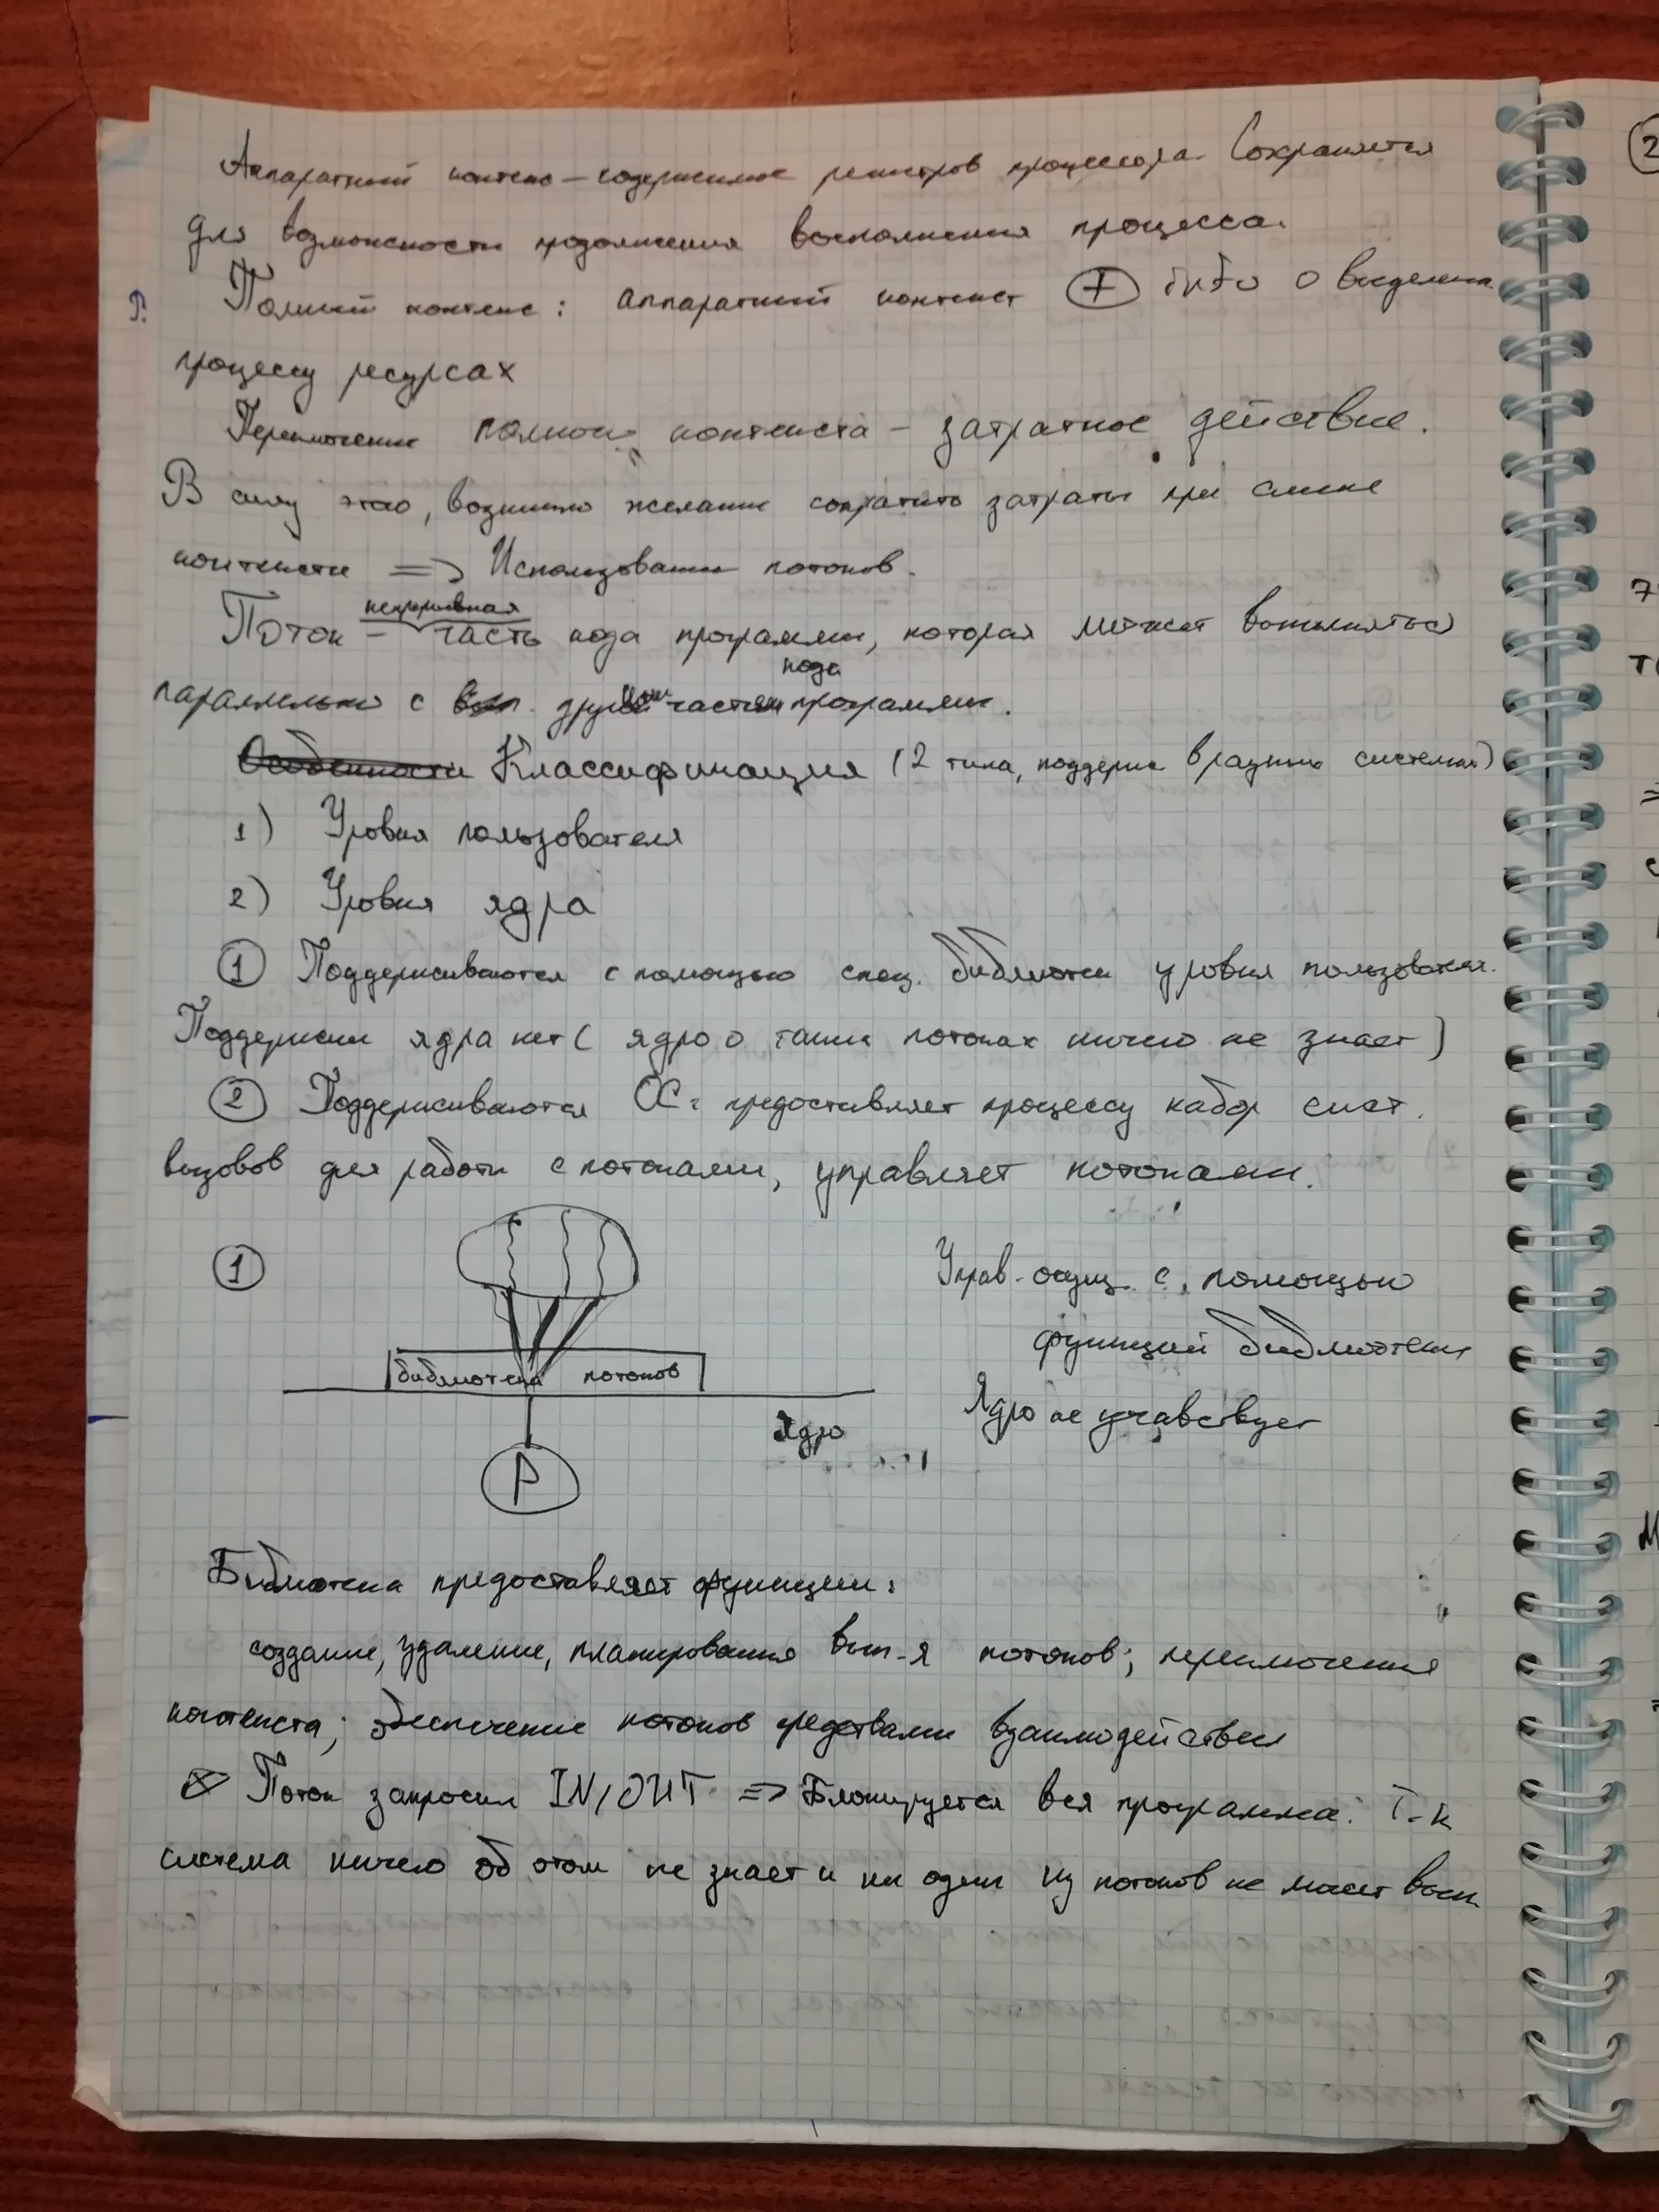 Аппаратный контекс – содержимое регистров процессора. Сохраняется
для возможности продолжения выполнения процесса.
Полный контекс: аппаратный контекст + инфо о выделен.
процессу ресурсах
Переключение полного контекста – затратное действие.
В силу этого, возникло желание сократить затраты при смене
контекста => Использование потоков.
непрерывная
Поток – часть кода программы, которая может выполняться
кода
параллельно с другими частями программы.
Особенности Классификация (2 типа, поддерж в разных системах)
1) Уровня пользователя
2) Уровня ядра
1 Поддерживаются с помощью спец. библиотек уровня пользователя.
Поддержки ядра нет (ядро о таких потоках ничего не знает)
2 Поддерживаются ОС: предоставляет процессу набор сист.
вызовов для работы с потоками, управляет потоками.
1
Управ. осущ. с помощью
функций библиотеки
библиотека потоков
Ядро не учавствует
Ядро
P
Библиотека предоставляет функции:
создание, удаление, планирования вып-я потоков; переключения
контекста; обеспечение потоков средствами взаимодействия
Поток запросил IN/OUT => Блокируется вся программа. Т-к
система ничего об этом не знает и ни один из потоков не может вып.
2